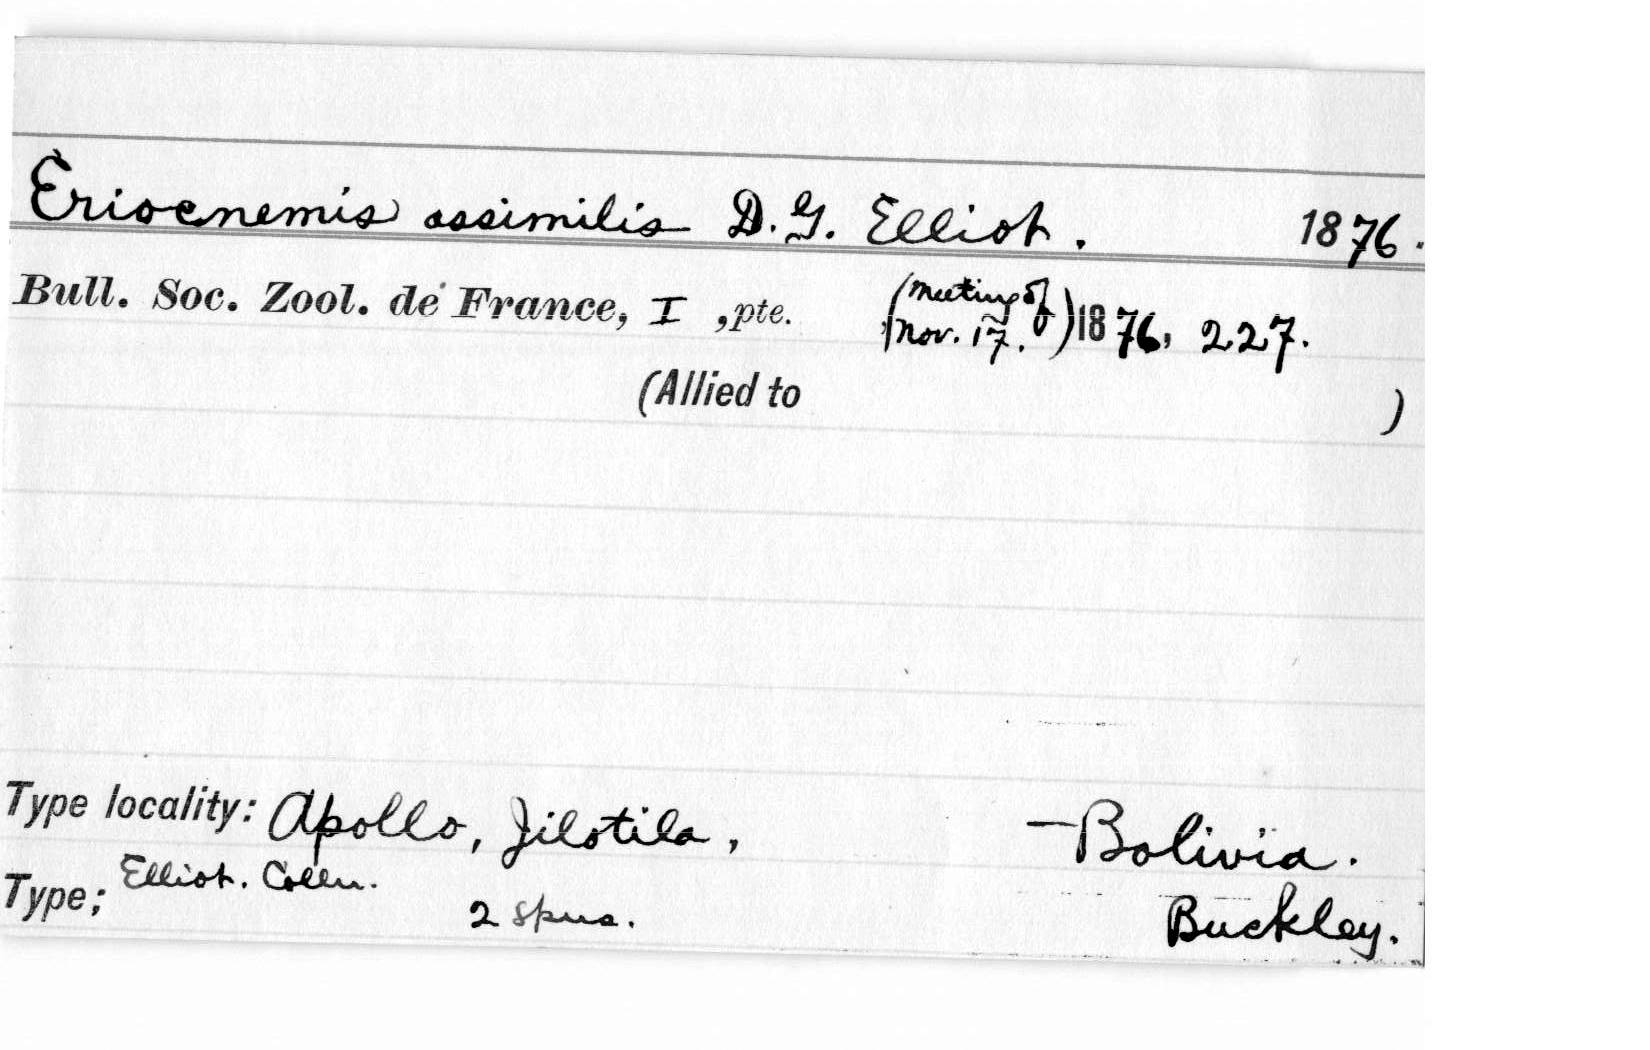 Eriocnemis assimilis D. G. Elliot. 1876.
Bull. Soc. Zool. de France, I , pte. (Meeting of Nov. 17.) 1876, 227.
(Allied to )
Type locality: Apollo, Jilotila, — Bolivia.
Type; Elliot. Colln. 2 spns. Buckley.